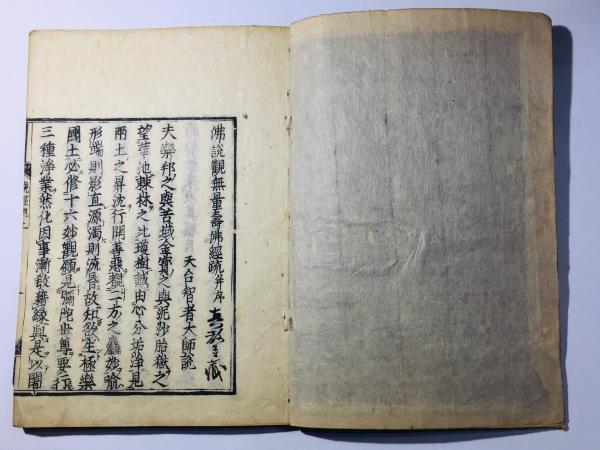 佛說觀無量壽佛經疏并序
天台智者大師說
夫樂邦之與苦域金寶之與泥沙胎獄之
望華池棘林之比瓊樹誠由心分垢淨見
兩土之昇沈行開善惡覩二方之麤妙喻
形端則影直源濁則流昏故知欲生極樂
國土必修十六妙觀願見彌陀世尊要行
三種淨業然化因事漸教藉緣興是以闍